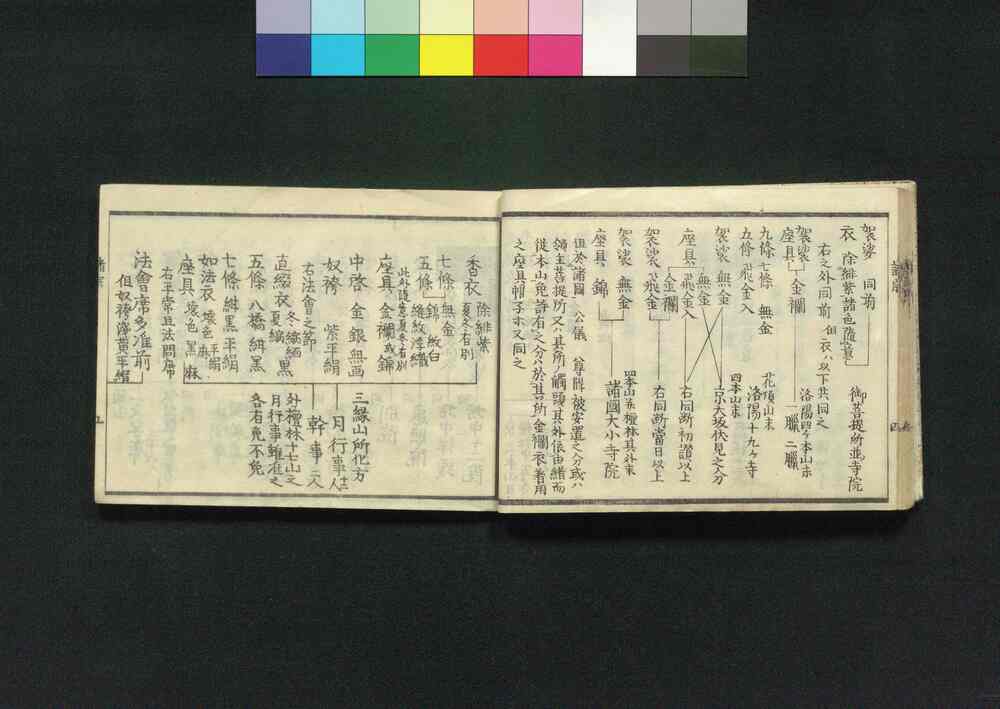 袈裟 同前
衣 除緋紫諸色随意
御菩提所並寺院
右之外同前 但衣ハ以下共同之
袈裟
座具 金襴
洛陽四ケ本山末
一臈 二臈
九條 七條 無金
五條 飛金入
花頂山末
洛陽十九ケ寺
袈裟 無金
四本山末
京大坂伏見之分
座具 無金
飛金入
右同断初諧以上
袈裟 金襴
飛金
右同断當日以上
袈裟 無金
座具 錦
四本山并檀林其外末
諸國大小寺院
但於諸國 公儀 尊牌被安置之分或ハ
領主菩提所又ハ其所ノ觸頭其外依由緒而
從本山免許有之分ハ於其所金襴衣着用
之座具帽子ホ又同之
香衣 除緋紫
夏冬有別
七條 無金
五條 錦 紋白
縫紋浮織
此外随意夏冬有別
座具 金襴或錦
中啓 金銀無画
奴袴 紫平絹
右法會之節
直綴衣 冬縮緬 黒
夏縞
五條 八橋絹黒
七條 絹黒平絹
如法衣 壊色 平絹
麻
座具 壊色 黒 麻
右平常且法問席
法會席多准前
但奴袴浅黄平絹
三縁山所化方
月行事 十二人
幹事 二人
外檀林十七山之
月行事雖准之
各有免不免